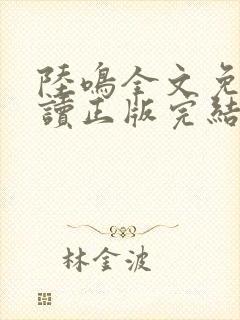 陸鳴全文免
讀正版完結
林金波